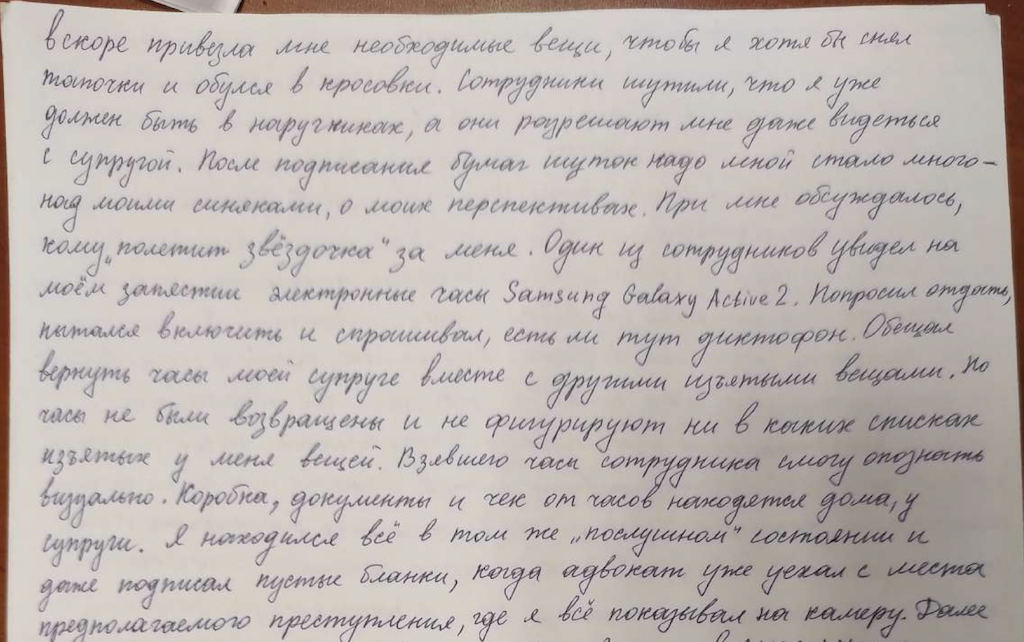 вскоре привезла мне необходимые вещи, чтобы я хотя бы снял
тапочки и обулся в кросовки. Сотрудники шутили, что я уже
должен быть в наручниках, а они разрешают мне даже видеться
с супругой. После подписания бумаг шуток надо мной стало много-
над моими синяками, о моих перспективах. При мне обсуждалось,
кому „полетит звёздочка" за меня. Один из сотрудников увидел на
моём запястии электронные часы Samsung Galaxy Active 2. Попросил отдать,
пытался включить и спрашивал, есть ли тут диктофон. Обещал
вернуть часы моей супруге вместе с другими изъятыми вещами. Но
часы не были возвращены и не фигурируют ни в каких списках
изъятых у меня вещей. Взявшего часы сотрудника смогу опознать
визуально. Коробка, документы и чек от часов находятся дома, у
супруги. Я находился всё в том же „послушном" состоянии и
даже подписал пустые бланки, когда адвокат уже уехал с места
предполагаемого преступления, где я всё показывал на камеру. Далее